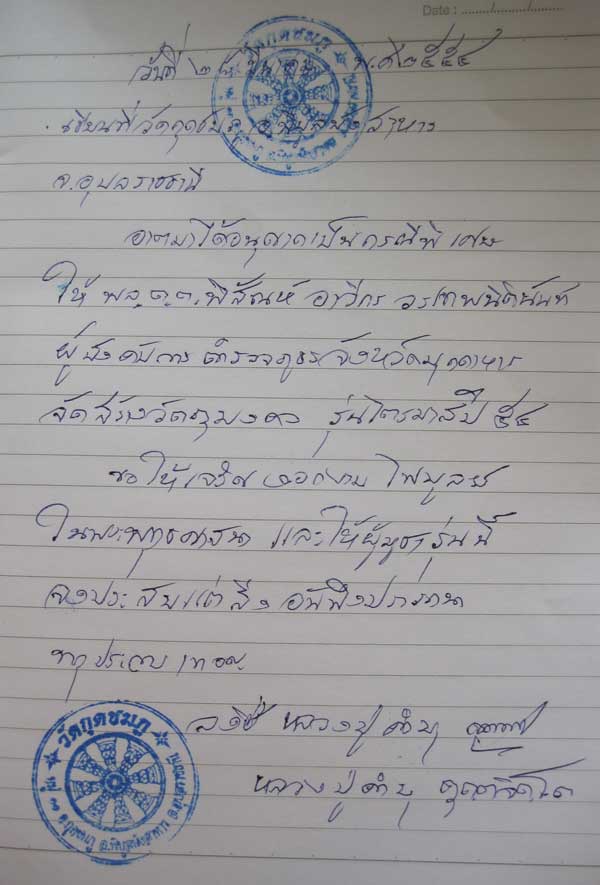 Date : ......../......../........
วันที่ ๒๘ มีนาคม พ.ศ ๒๕๕๔
เขียนที่วัดกุดชมภู อ.พิบูลมังสาหาร
จ.อุบลราชธานี
อาตมาได้อนุญาตเป็นกรณีพิเศษ
ให้ พล.ต.ต. พิสัณห์ อาวีกร วรเทพนิตินันท์
ผู้บังคับการตำรวจภูธรจังหวัดมุกดาหาร
จัดสร้างวัตถุมงคล รุ่นไตรมาสปี ๕๔
ขอให้เจริญงอกงาม ไพบูลย์
ในพระพุทธศาสนา และให้ผู้บูชารุ่นนี้
จงประสบแต่สิ่งอันพึงปรารถนา
ทุกประการ เทอญ
ลงชื่อ หลวงปู่คำบุ
หลวงปู่คำบุ คุตฺตจิตฺโต
วัดกุดชมภู